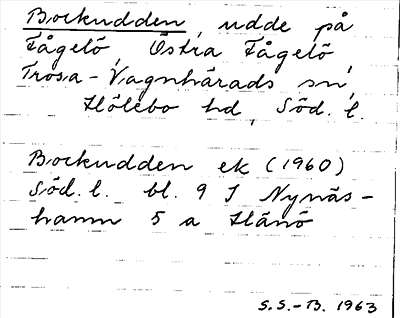 Bockudden, udde på
Fågelö, Östra Fågelö,
Trosa-Vagnhärads sn,
Hölebo hd, Söd. l.
Bockudden ek (1960)
Söd. l. bl. 9 I Nynäs-
hamn 5 a Hånö
S.S.-B. 1963